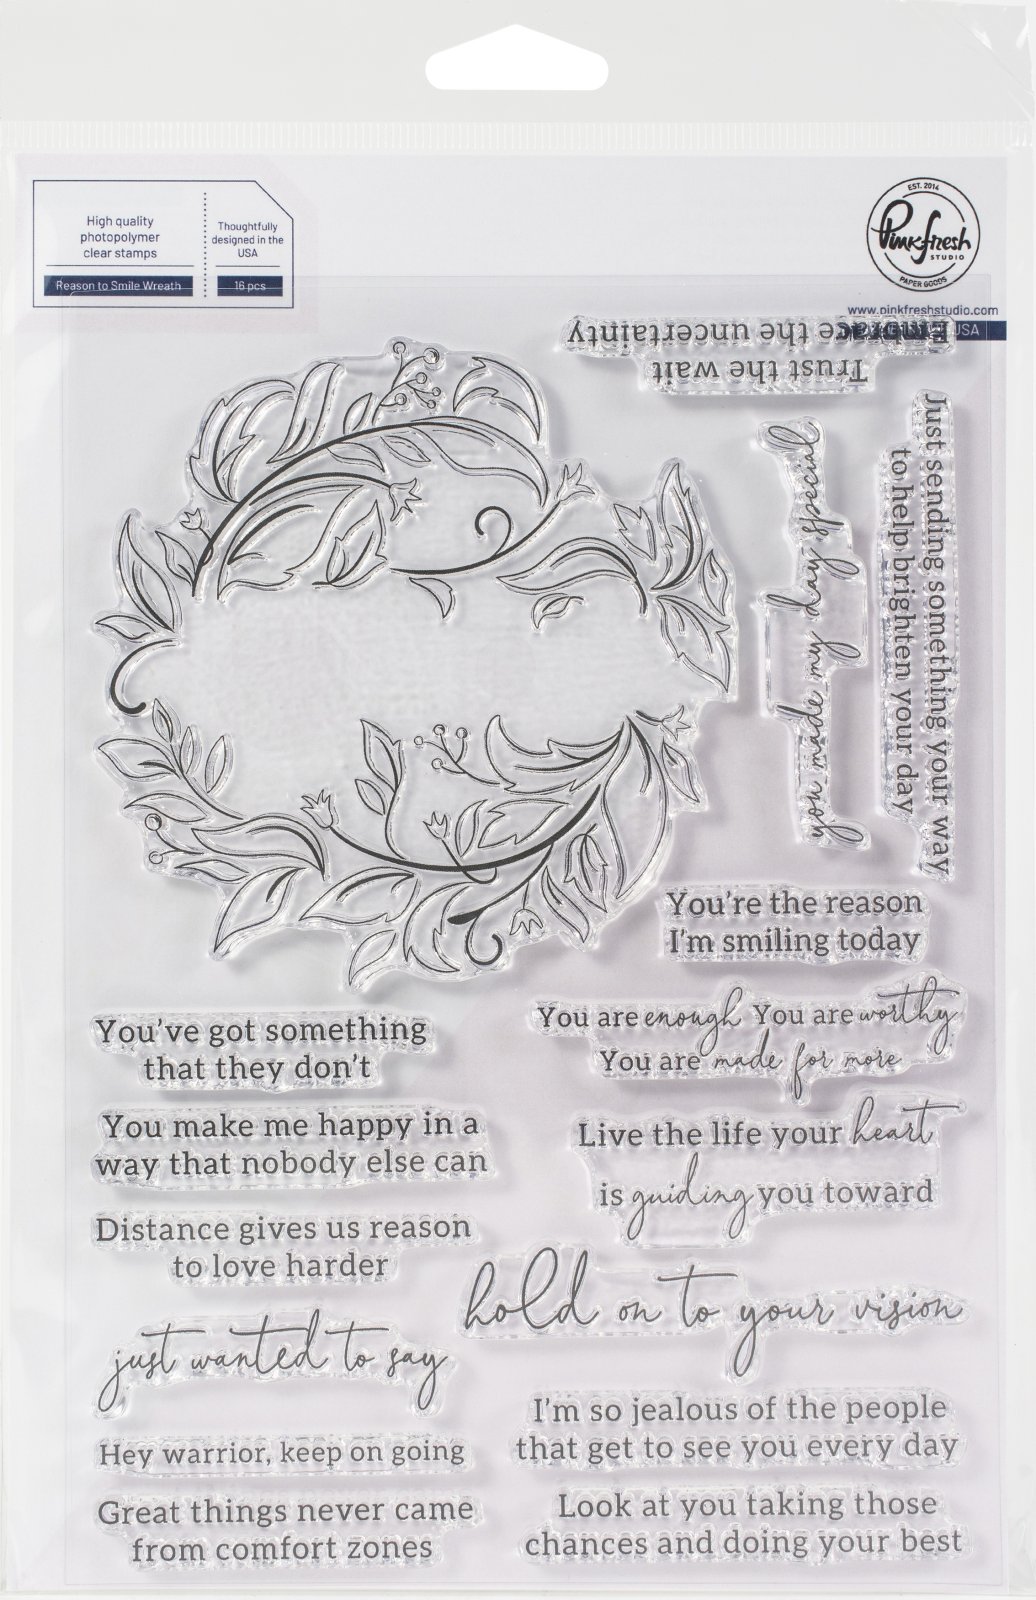 High quality
photopolymer
clear stamps
Reason to Smile Wreath
Thoughtfully
designed in the
USA
16 pcs
EST. 2014
Pinkfresh
STUDIO
PAPER GOODS
www.pinkfreshstudio.com
USA
Embrace the uncertainty
Trust the wait
you made my day special
Just sending something your way
to help brighten your day
You're the reason
I'm smiling today
You are enough You are worthy
You are made for more
Live the life your heart
is guiding you toward
hold on to your vision
I'm so jealous of the people
that get to see you every day
Look at you taking those
chances and doing your best
You've got something
that they don't
You make me happy in a
way that nobody else can
Distance gives us reason
to love harder
just wanted to say
Hey warrior, keep on going
Great things never came
from comfort zones